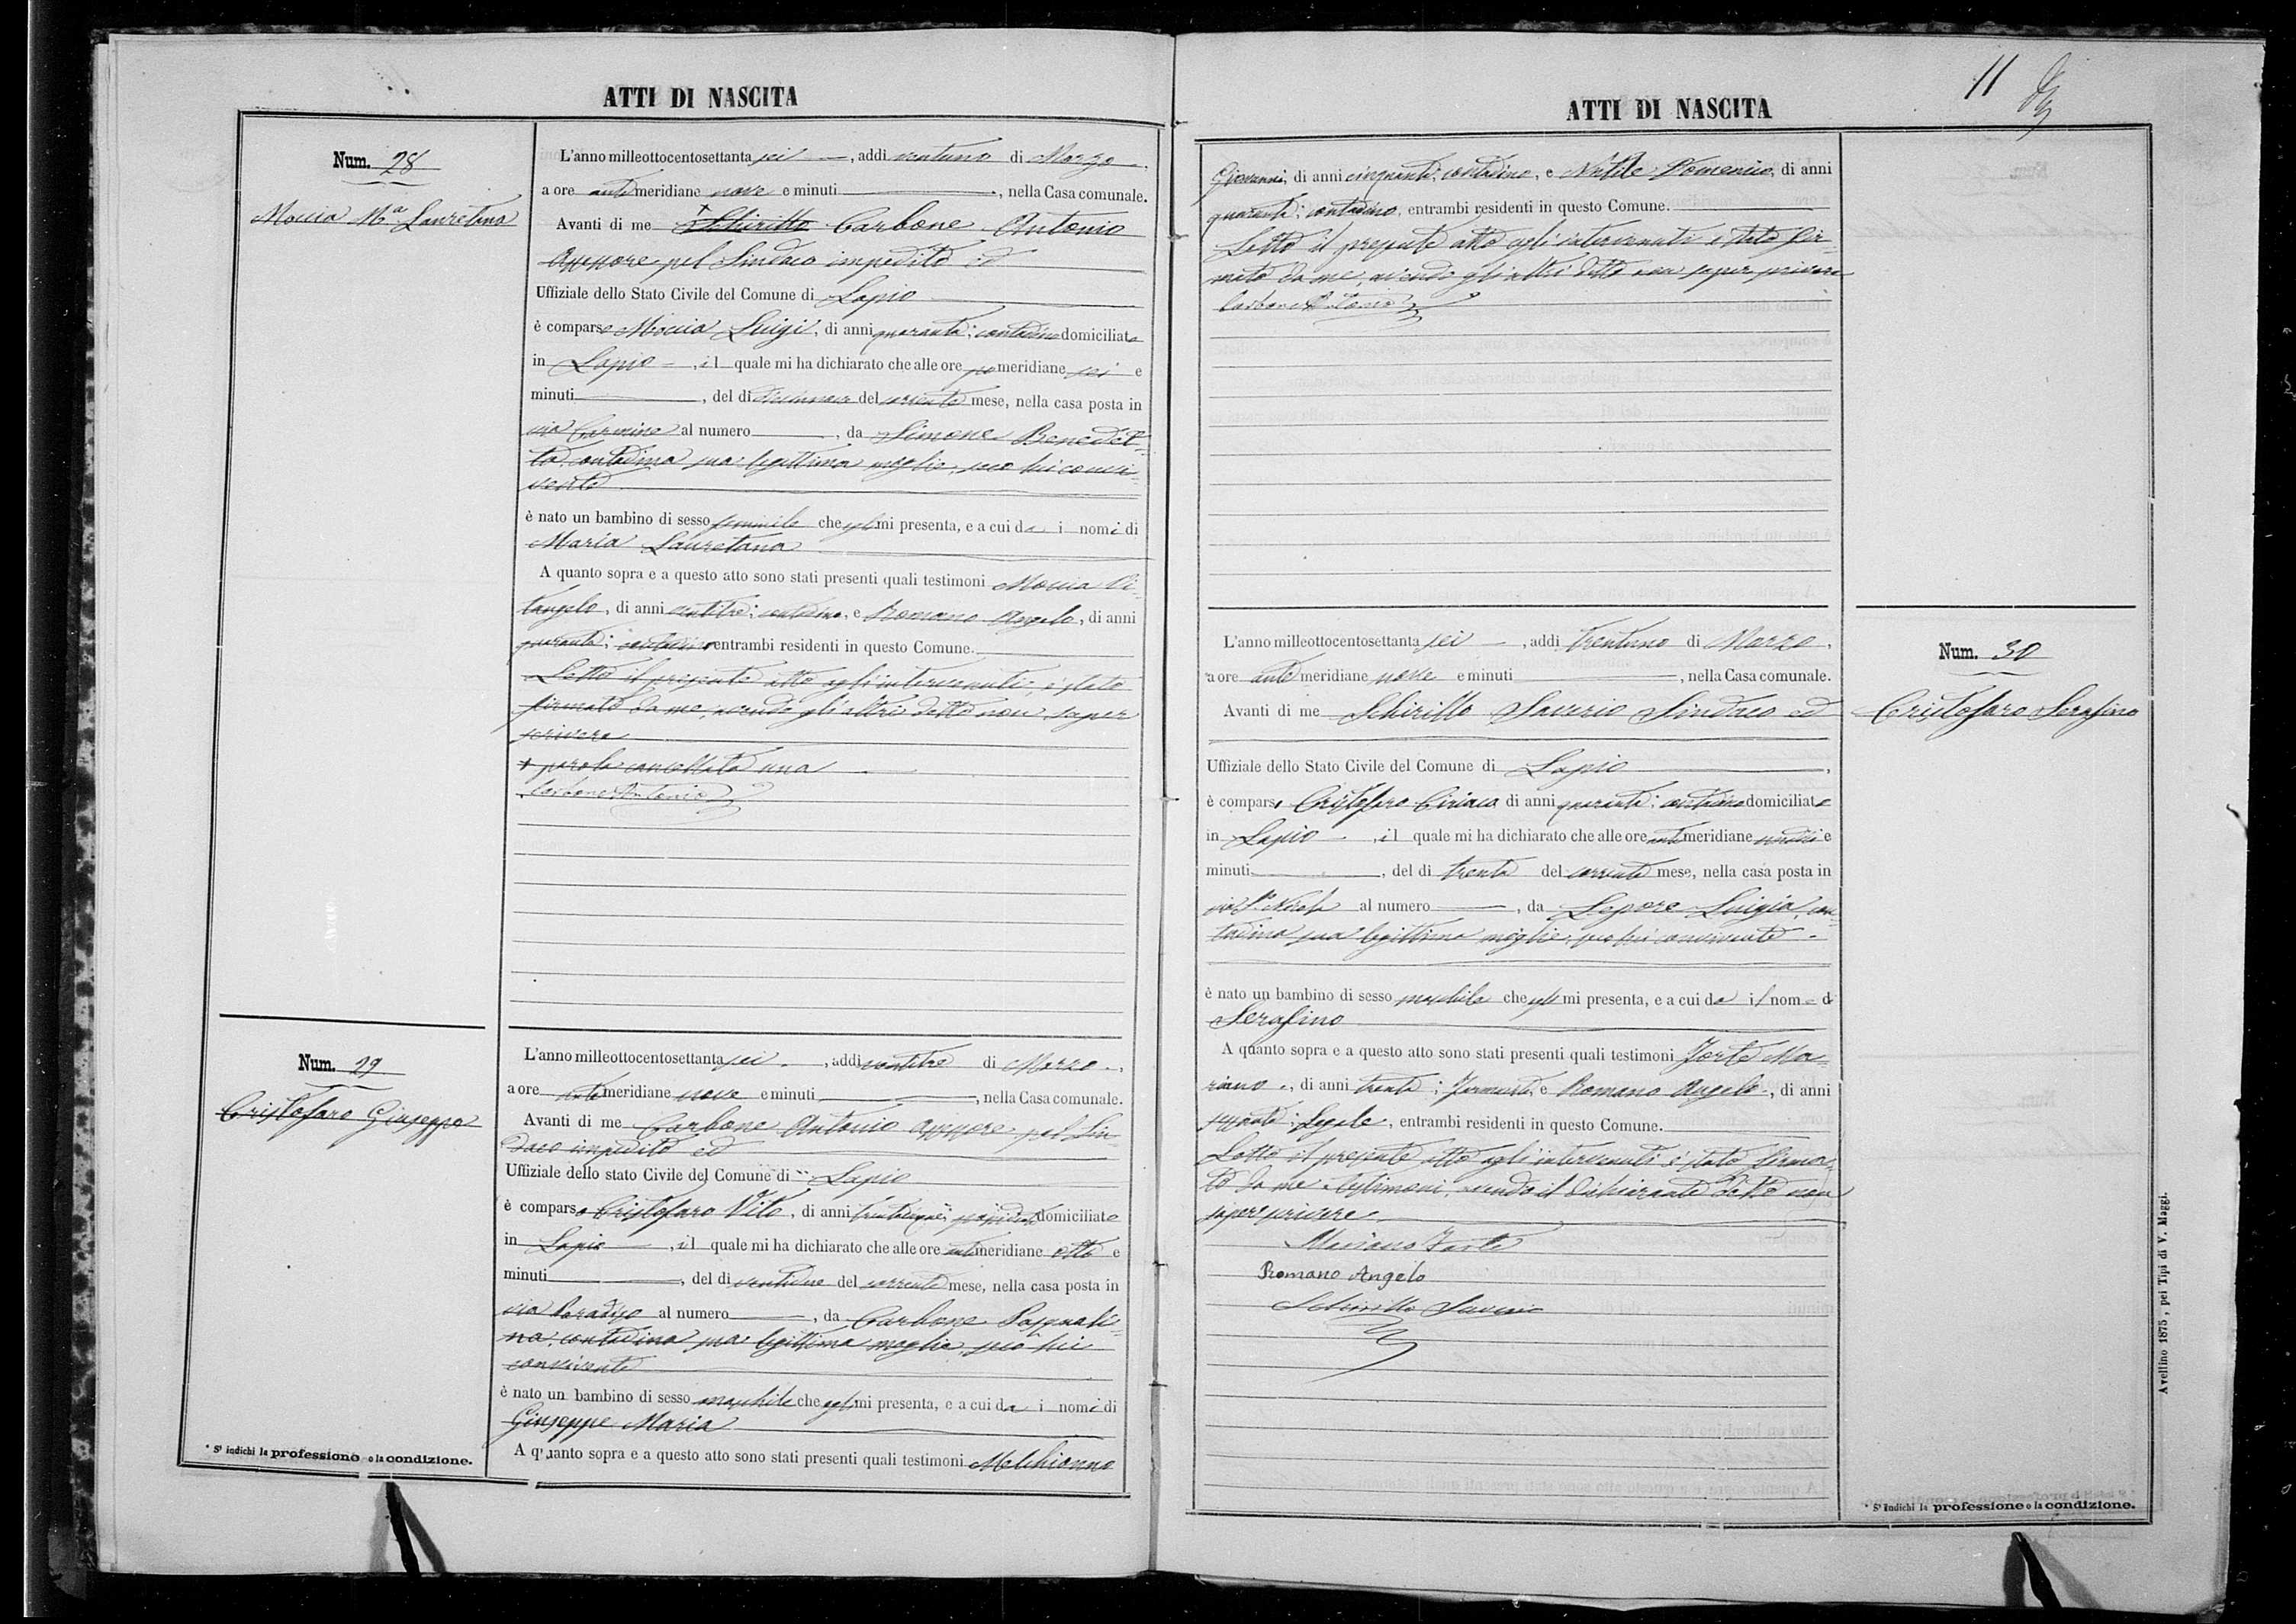 ATTI DI NASCITA
Num. 28
Moccia M.a Lauretana
L'anno milleottocentosettanta sei, addi ventuno di Marzo,
a ore antimeridiane nove e minuti, nella Casa comunale.
Avanti di me Schirillo Carbone Antonio
Assessore pel Sindaco impedito ed
Uffiziale dello Stato Civile del Comune di Lapio
è comparso Moccia Luigi, di anni quaranta; contadino domiciliato
in Lapio, il quale mi ha dichiarato che alle ore pomeridiane sei e
minuti, del di diciannove del corrente mese, nella casa posta in
via Carmine al numero, da Simone Benedet-
ta contadina sua legittima moglie, seco lui convi-
vente
è nato un bambino di sesso femminile che egli mi presenta, e a cui da i nomi di
Maria Lauretana
A quanto sopra e a questo atto sono stati presenti quali testimoni Moccia Vi-
tangelo, di anni ventitre; contadino, e Romano Angelo, di anni
quaranta; contadino entrambi residenti in questo Comune.
Letto il presente atto agli intervenuti, è stato
firmato da me, avendo gli altri detto non saper
scrivere
+ parola cancellata una
Carbone Antonio
Num. 29
Cristofaro Giuseppe
L'anno milleottocentosettanta sei, addi ventitre di Marzo,
a ore antimeridiane nove e minuti, nella Casa comunale.
Avanti di me Carbone Antonio assessore pel Sin
daco impedito ed
Uffiziale dello stato Civile del Comune di Lapio
è comparso Cristofaro Vito, di anni trentacinque; domiciliato
in Lapio, il quale mi ha dichiarato che alle ore antimeridiane otto e
minuti, del di ventidue del corrente mese, nella casa posta in
via Paradiso al numero, da Carbone Pasquali-
na, contadina sua legittima moglie, seco lui
convivente
è nato un bambino di sesso maschile che egli mi presenta, e a cui da i nomi di
Giuseppe Maria
A quanto sopra e a questo atto sono stati presenti quali testimoni Melchionno
* Si indichi la professione o la condizione.
11
ATTI DI NASCITA
Giovanni, di anni cinquanta; contadino, e Nutile Domenico, di anni
quaranta; contadino, entrambi residenti in questo Comune.
Letto il presente atto agli intervenuti è stato fir-
mato da me, avendo gli altri detto non saper scrivere
Carbone Antonio
Num. 30
Cristofaro Serafino
L'anno milleottocentosettanta sei, addi trentuno di Marzo,
a ore antimeridiane nove e minuti, nella Casa comunale.
Avanti di me Schirillo Saverio Sindaco ed
Uffiziale dello Stato Civile del Comune di Lapio,
è comparso Cristofaro Ciriaco di anni quaranta; contadino domiciliato
in Lapio, il quale mi ha dichiarato che alle ore antimeridiane undici e
minuti, del di trenta del corrente mese, nella casa posta in
via S. Nicola al numero, da Lepore Luigia, con-
tadina sua legittima moglie, seco lui convivente
è nato un bambino di sesso maschile che egli mi presenta, e a cui da il nome di
Serafino
A quanto sopra e a questo atto sono stati presenti quali testimoni Forte Ma-
riano, di anni trenta; e Romano Angelo, di anni
sessanta; entrambi residenti in questo Comune.
Letto il presente atto agli intervenuti è stato firma-
to da me e testimoni, avendo il dichiarante detto non
saper scrivere
Mariano Forte
Romano Angelo
Schirillo Saverio
* Si indichi la professione o la condizione.
Avellino 1875, pei Tipi di V. Maggi.